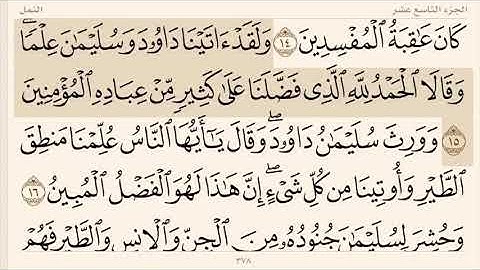 الجزء التاسع عشر
النمل
كَانَ عَٰقِبَةُ ٱلْمُفْسِدِينَ ١٤ وَلَقَدْ ءَاتَيْنَا دَاوُۥدَ وَسُلَيْمَٰنَ عِلْمًاۖ
وَقَالَا ٱلْحَمْدُ لِلَّهِ ٱلَّذِى فَضَّلَنَا عَلَىٰ كَثِيرٍ مِّنْ عِبَادِهِ ٱلْمُؤْمِنِينَ
١٥ وَوَرِثَ سُلَيْمَٰنُ دَاوُۥدَۖ وَقَالَ يَٰٓأَيُّهَا ٱلنَّاسُ عُلِّمْنَا مَنطِقَ
ٱلطَّيْرِ وَأُوتِينَا مِن كُلِّ شَىْءٍۖ إِنَّ هَٰذَا لَهُوَ ٱلْفَضْلُ ٱلْمُبِينُ ١٦
وَحُشِرَ لِسُلَيْمَٰنَ جُنُودُهُۥ مِنَ ٱلْجِنِّ وَٱلْإِنسِ وَٱلطَّيْرِ فَهُمْ
٣٧٨